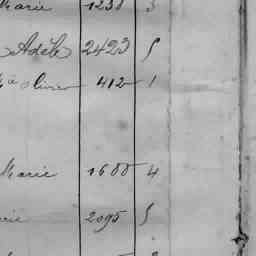 Marie 1238 3
Adèle 2423 5
Olivier 412 1
Marie 1600 4
rie 2095 5